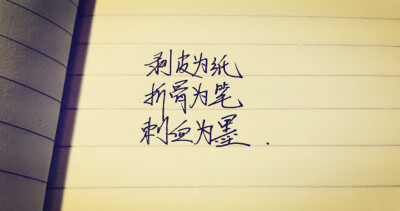 剥皮为纸
折骨为笔
刺血为墨.